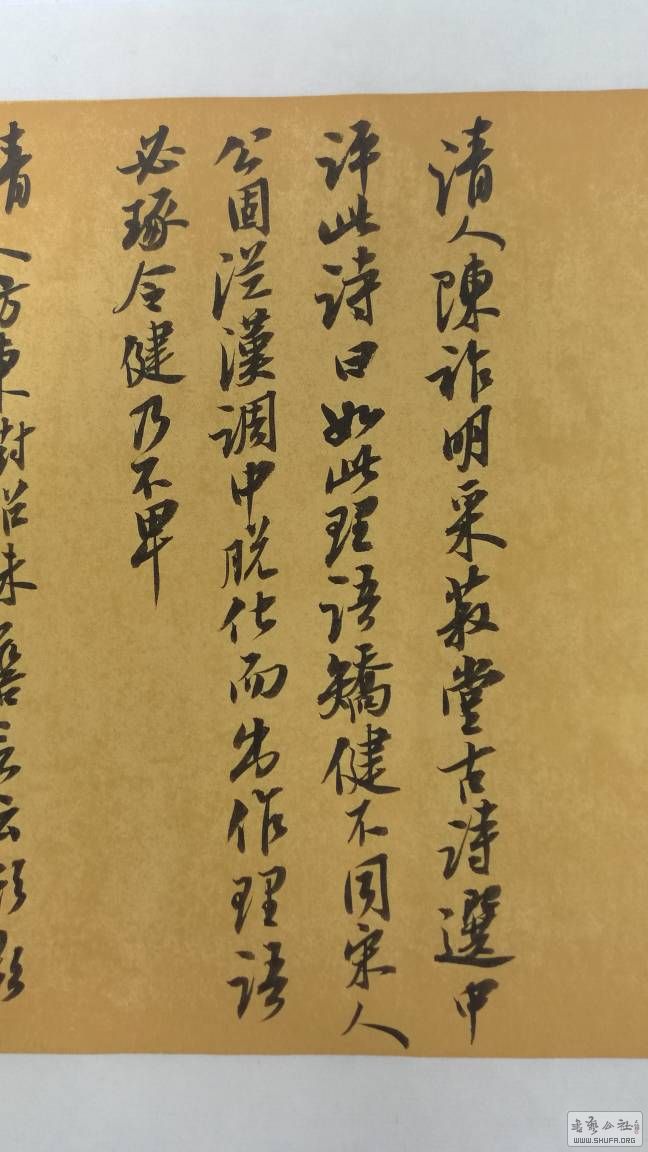 清人陳祚明采菽堂古詩選中
評此詩曰如此理語矯健不同宋人
公固從漢調中脫化而出作理語
必琢令健乃不卑
清人方東樹昭昧詹言云
書藝公社
WWW.SHUFA.ORG